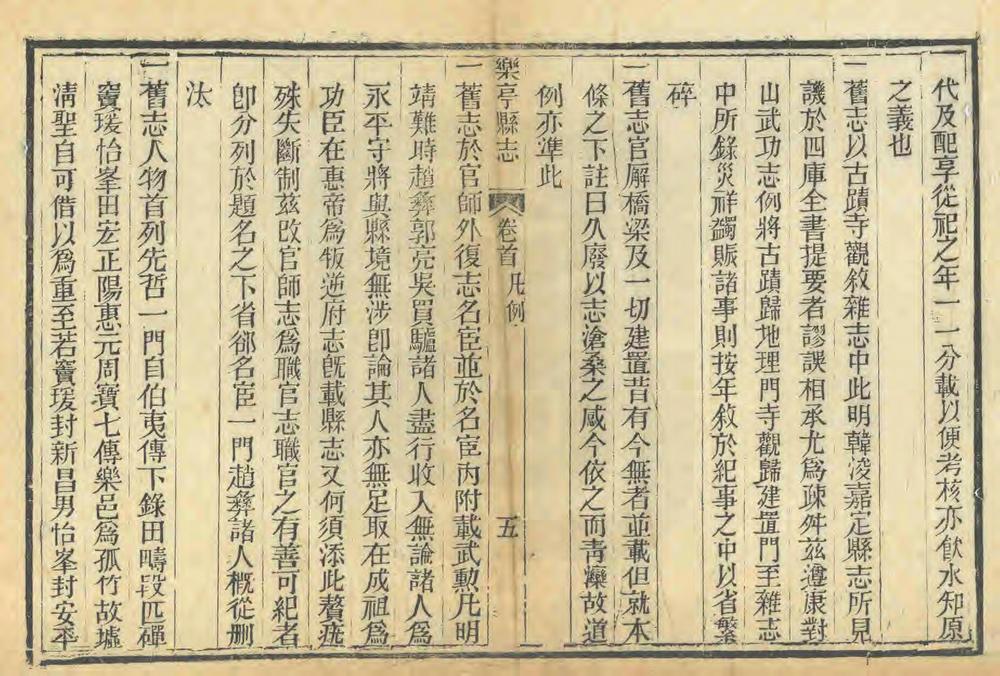 代及配享從祀之年一一分載以便考核亦飲水知原
之義也
一舊志以古蹟寺觀敘雜志中此明韓浚嘉定縣志所見
譏於四庫全書提要者謬誤相承尤為疎舛茲遵康對
山武功志例將古蹟歸地理門寺觀歸建置門至雜志
中所錄災祥蠲賑諸事則按年敘於紀事之中以省繁
碎
一舊志官廨橋梁及一切建置昔有今無者並載但就本
條之下註曰久廢以志滄桑之感今依之而青灤故道
例亦準此
樂亭縣志 卷首 凡例 五
一舊志於官師外復志名宦並於名宦內附載武勲凡明
靖難時趙彝郭亮吳買驢諸人盡行收入無論諸人為
永平守將與縣境無涉卽論其人亦無足取在成祖為
功臣在惠帝為叛逆府志旣載縣志又何須添此贅疣
殊失斷制茲改官師志為職官志職官之有善可紀者
卽分列於題名之下省郤名宦一門趙彝諸人槪從刪
汰
一舊志人物首列先哲一門自伯夷傳下錄田疇段匹磾
竇瑗怡峯田宏正陽惠元周寶七傳樂邑為孤竹故墟
淸聖自可借以為重至若竇瑗封新昌男怡峯封安平